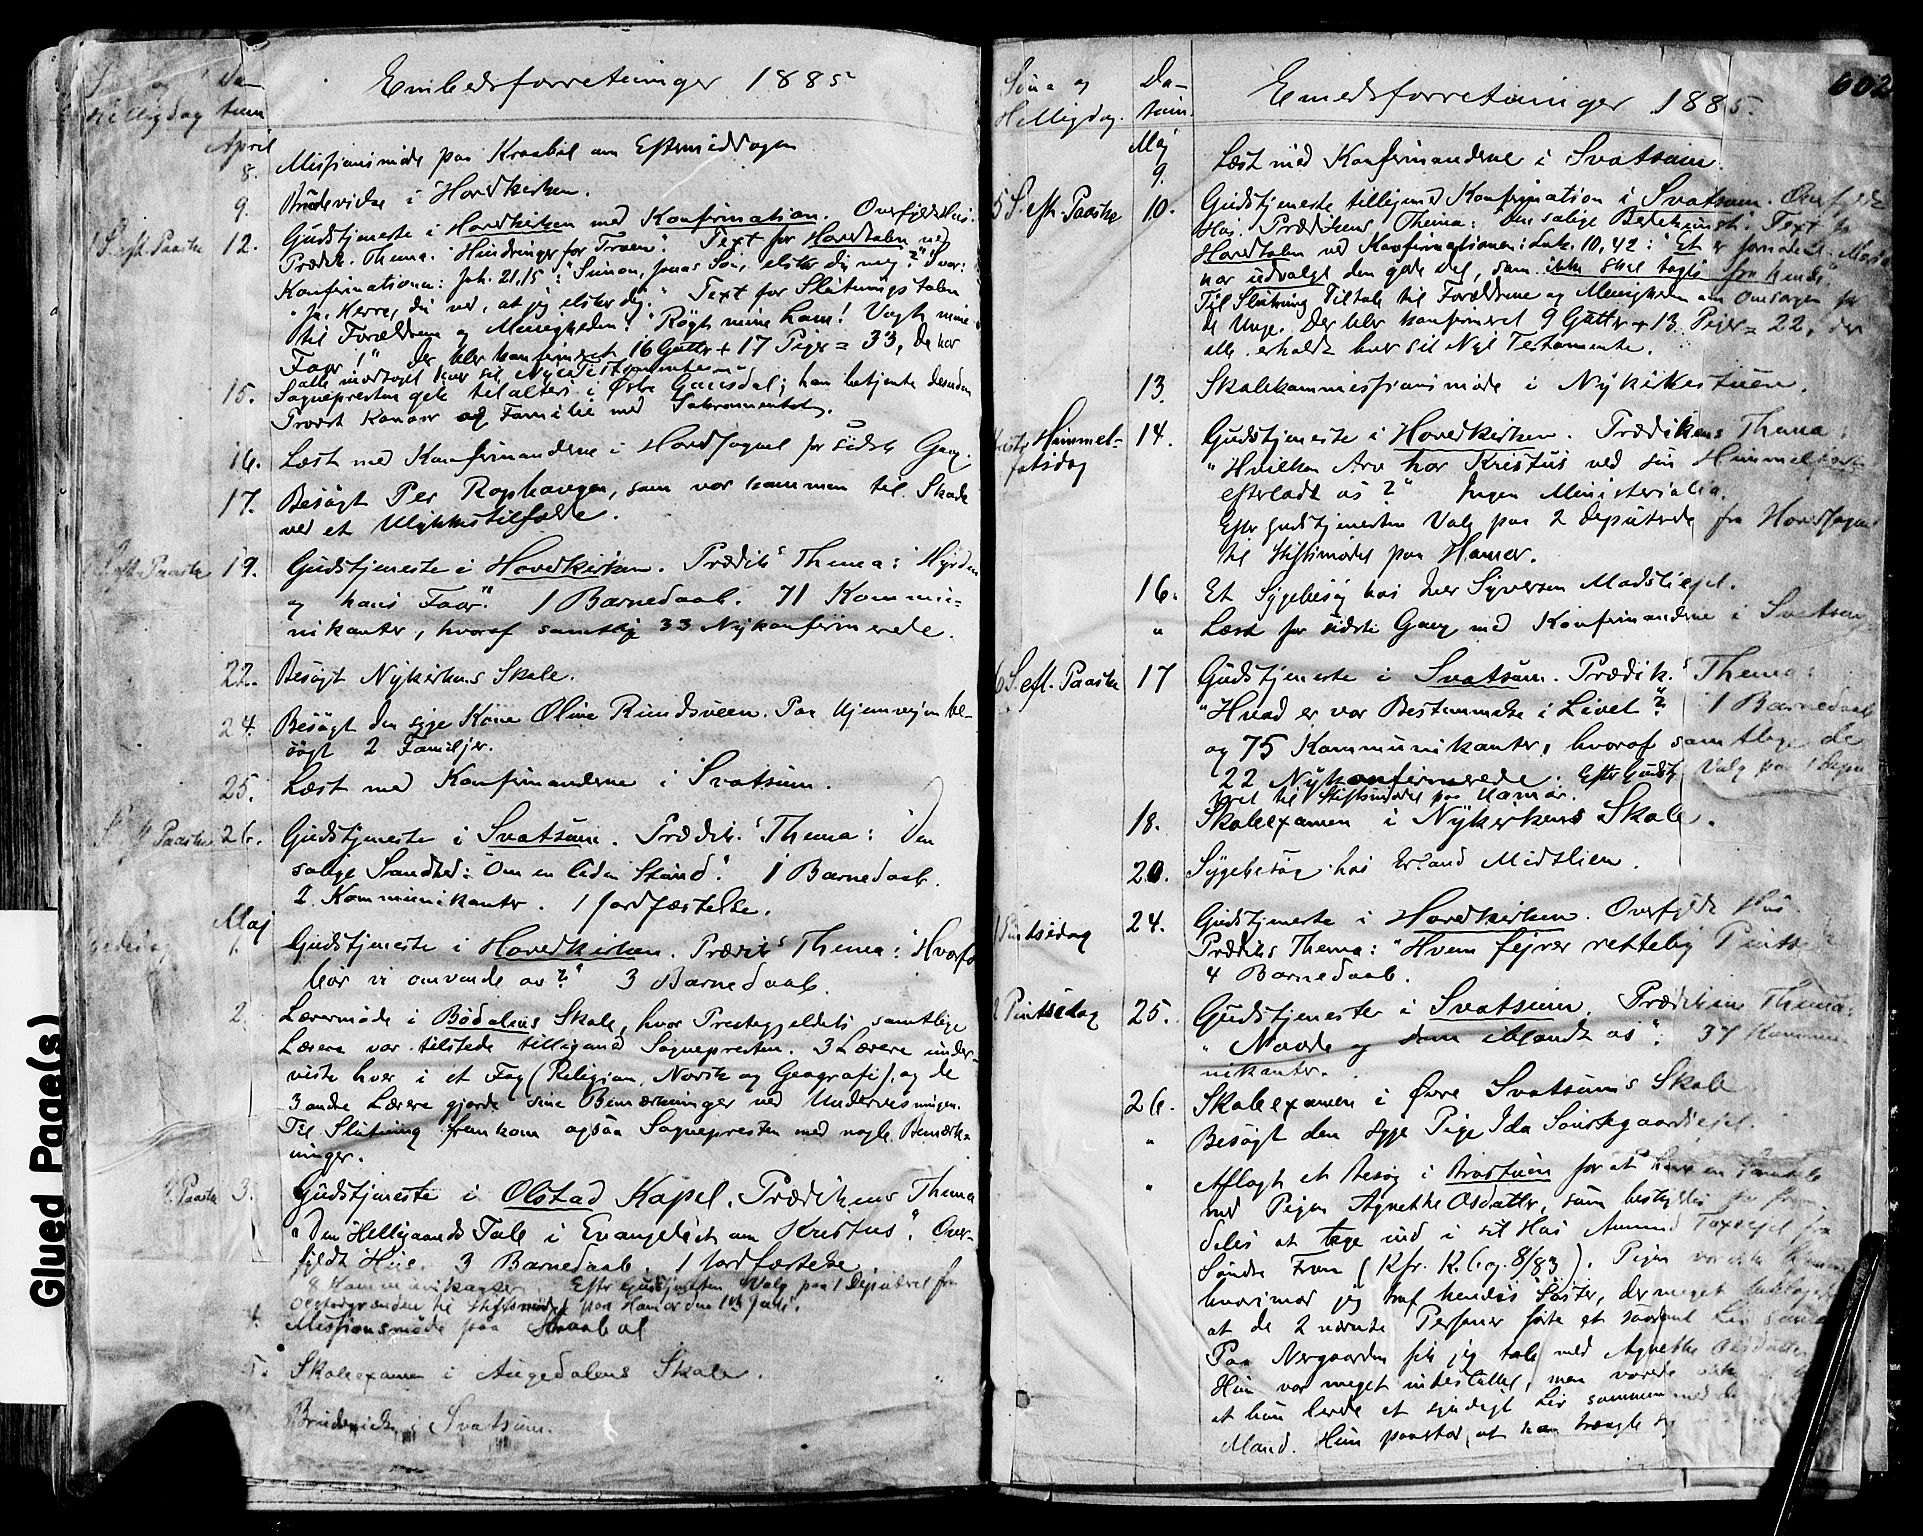 Helligdag
Da-
tum
Embedsforretninger 1885
April
8. Missionsmøde paa Kraabøl om Eftermiddagen
9. Brudevielse i Hovedkirken.
S. eft. Paaske 12. Gudstjeneste i Hovedkirken med Konfirmation. Overfyldt Hus.
Prædik. Thema: "Hindringer for Troen". Text for Hovedtalen ved
Konfirmationen: Joh. 21,15: "Simon, Jonas Søn, elsker du mig?" Svar:
"Ja, Herre, du ved, at jeg elsker dig." Text for Slutningstalen
til Forældrene og Menigheden: "Røgt mine Lam! Vogt mine
Faar!" Der blev konfirmeret 16 Gutter + 17 Piger = 33, de har
alle modtaget hver sit Nye Testamente.
15. Sognepresten gik til alters i Østre Gausdal; han betjente desuden
Provst Kanarr og Familie med Sakramentet.
16. Læst med Konfirmanderne i Hovedsognet for sidste Gang.
17. Besøgt Per Rophaugen, som var kommen til Skade
ved et Ulykkestilfælde.
S. eft. Paaske 19. Gudstjeneste i Hovedkirken. Prædik.s Thema: "Hyrden
og hans Faar". 1 Barnedaab. 71 Kommu-
nikanter, hvoraf samtlige 33 Nykonfirmerede.
22. Besøgt Nykirkens Skole.
24. Besøgt den syge Kone Oline Rundsveen. Paa Hjemvejen be-
søgt 2 Familjer.
25. Læst med Konfirmanderne i Svatsum.
S. eft Paaske 26. Gudstjeneste i Svatsum. Prædik.s Thema: "Den
salige Sandhed: Om en liden Stund". 1 Barnedaab.
2 Kommunikanter. 1 Jordfæstelse.
Maj
1. Gudstjeneste i Hovedkirken. Prædik.s Thema: "Hvorfor
bør vi omvende os?" 3 Barnedaab.
2. Lærermøde i Bødalens Skole, hvor Prestegjeldets samtlige
Lærere var tilstede tilligemed Sognepresten. 3 Lærere under-
viste hver i et Fag (Religion, Norsk og Geografi), og de
3 andre Lærere gjorde sine Bemærkninger ved Undervisningen.
Til Slutning fremkom ogsaa Sognepresten med nogle Bemærk-
ninger.
Paaske 3. Gudstjeneste i Olstad Kapel. Prædikens Thema
"Den Helligaands Tale i Evangeliet om Kristus". Over-
fyldt Hus. 3 Barnedaab. 1 Jordfæstelse.
8 Kommunikanter. Efter Gudstjenesten Valg paa 1 Deputeret fra
Olstadgrænden til Stiftsmødet paa Hamar den Juli.
4. Missionsmøde paa Kraabøl
5. Skoleexamen i Augedalens Skole.
Brudevielse i Svatsum.
Søn- og
Helligdag.
Da-
tum.
Emedsforretninger 1885.
602
Maj
9. Læst med Konfirmanderne i Svatsum.
5 S. eft. Paaske 10. Gudstjeneste tilligemed Konfirmation i Svatsum. Overfyldt
Hus. Prædikens Thema: "Den salige Bedekunst". Text for
Hovedtalen ved Konfirmationen: Luk. 10,42: "Et er fornødent. Maria
har udvalgt den gode Del, som ikke skal tages fra hende".
Til Slutning Tiltale til Forældrene og Menigheden om Omsorgen for
de Unge. Der blev konfirmeret 9 Gutter + 13 Piger = 22, der
alle erholdt hver sit Nyt Testamente.
13. Skolekommissionsmøde i Nykirkestuen.
Kristi Himmel-
fartsdag 14. Gudstjeneste i Hovedkirken. Prædikens Thema:
"Hvilken Arv har Kristus ved sin Himmelfart
efterladt os?" Ingen Ministerialia.
Efter Gudstjenesten Valg paa 2 Deputerede fra Hovedsognet
til Stiftsmødet paa Hamar.
16. Et Sygebesøg hos Iver Syversen Madsliejet.
" Læst for sidste Gang med Konfirmanderne i Svatsum
6 S. eft. Paaske 17 Gudstjeneste i Svatsum. Prædik.s Thema:
"Hvad er vor Bestemmelse i Livet?" 1 Barnedaab
og 75 Kommunikanter, hvoraf samtlige de
22 Nykonfirmerede. Efter Gudstj. Valg paa 1 Depu-
teret til Stiftsmødet paa Hamar.
18. Skoleexamen i Nykirkens Skole.
20. Sygebesøg hos Erland Midtlien.
1 Pintsedag 24. Gudstjeneste i Hovedkirken. Overfyldt Hus.
Prædik.s Thema: "Hvem fejrer rettelig Pintse
4 Barnedaab.
2 Pintsedag 25. Gudstjeneste i Svatsum. Prædikens Thema:
"Naade og Dom iblandt os". 37 Kommu-
nikanter.
26. Skoleexamen i Øvre Svatsums Skole
" Besøgt den syge Pige Ida Sørskgaardsejet.
" Aflagt et Besøg i for at have en Samtale
med Pigen Agnethe Olsdatter, som beskyldes for frem-
deles at tage ind i sit Hus Amund fra
Søndre Fron (Kfr. K. 6 og 8/83). Pigen var ikke hjemme
hvorimod jeg traf hendes Søster, der meget beklagede
at de 2 nævnte Personer førte et saadant Liv sammen
Paa Nergaarden fik jeg tale med Agnethe Olsdatter
Hun var meget
at hun levde et syndigt Liv sammen med den
Mand. Hun paastod, at han trængte sig
Glued Page(s)